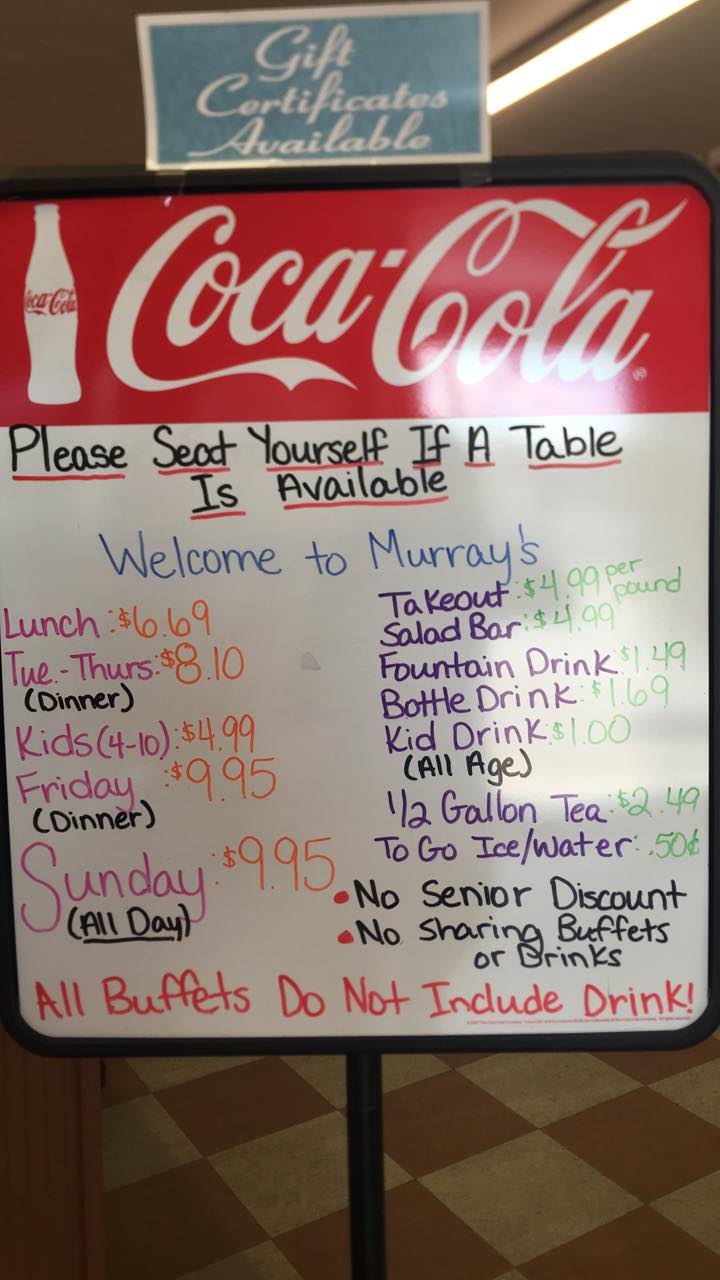 Gift
Certificates
Available
Coca-Cola
Coca-Cola
Please Seat Yourself If A Table
Is Available
Welcome to Murray's
Lunch: $6.69
Tue.-Thurs: $8.10
(Dinner)
Kids (4-10): $4.99
Friday: $9.95
(Dinner)
Sunday: $9.95
(All Day)
Takeout: $4.99 per pound
Salad Bar: $4.99
Fountain Drink: $1.49
Bottle Drink: $1.69
Kid Drink: $1.00
(All Age)
1/2 Gallon Tea: $2.49
To Go Ice/Water: .50¢
• No Senior Discount
• No Sharing Buffets
or Drinks
All Buffets Do Not Include Drink!